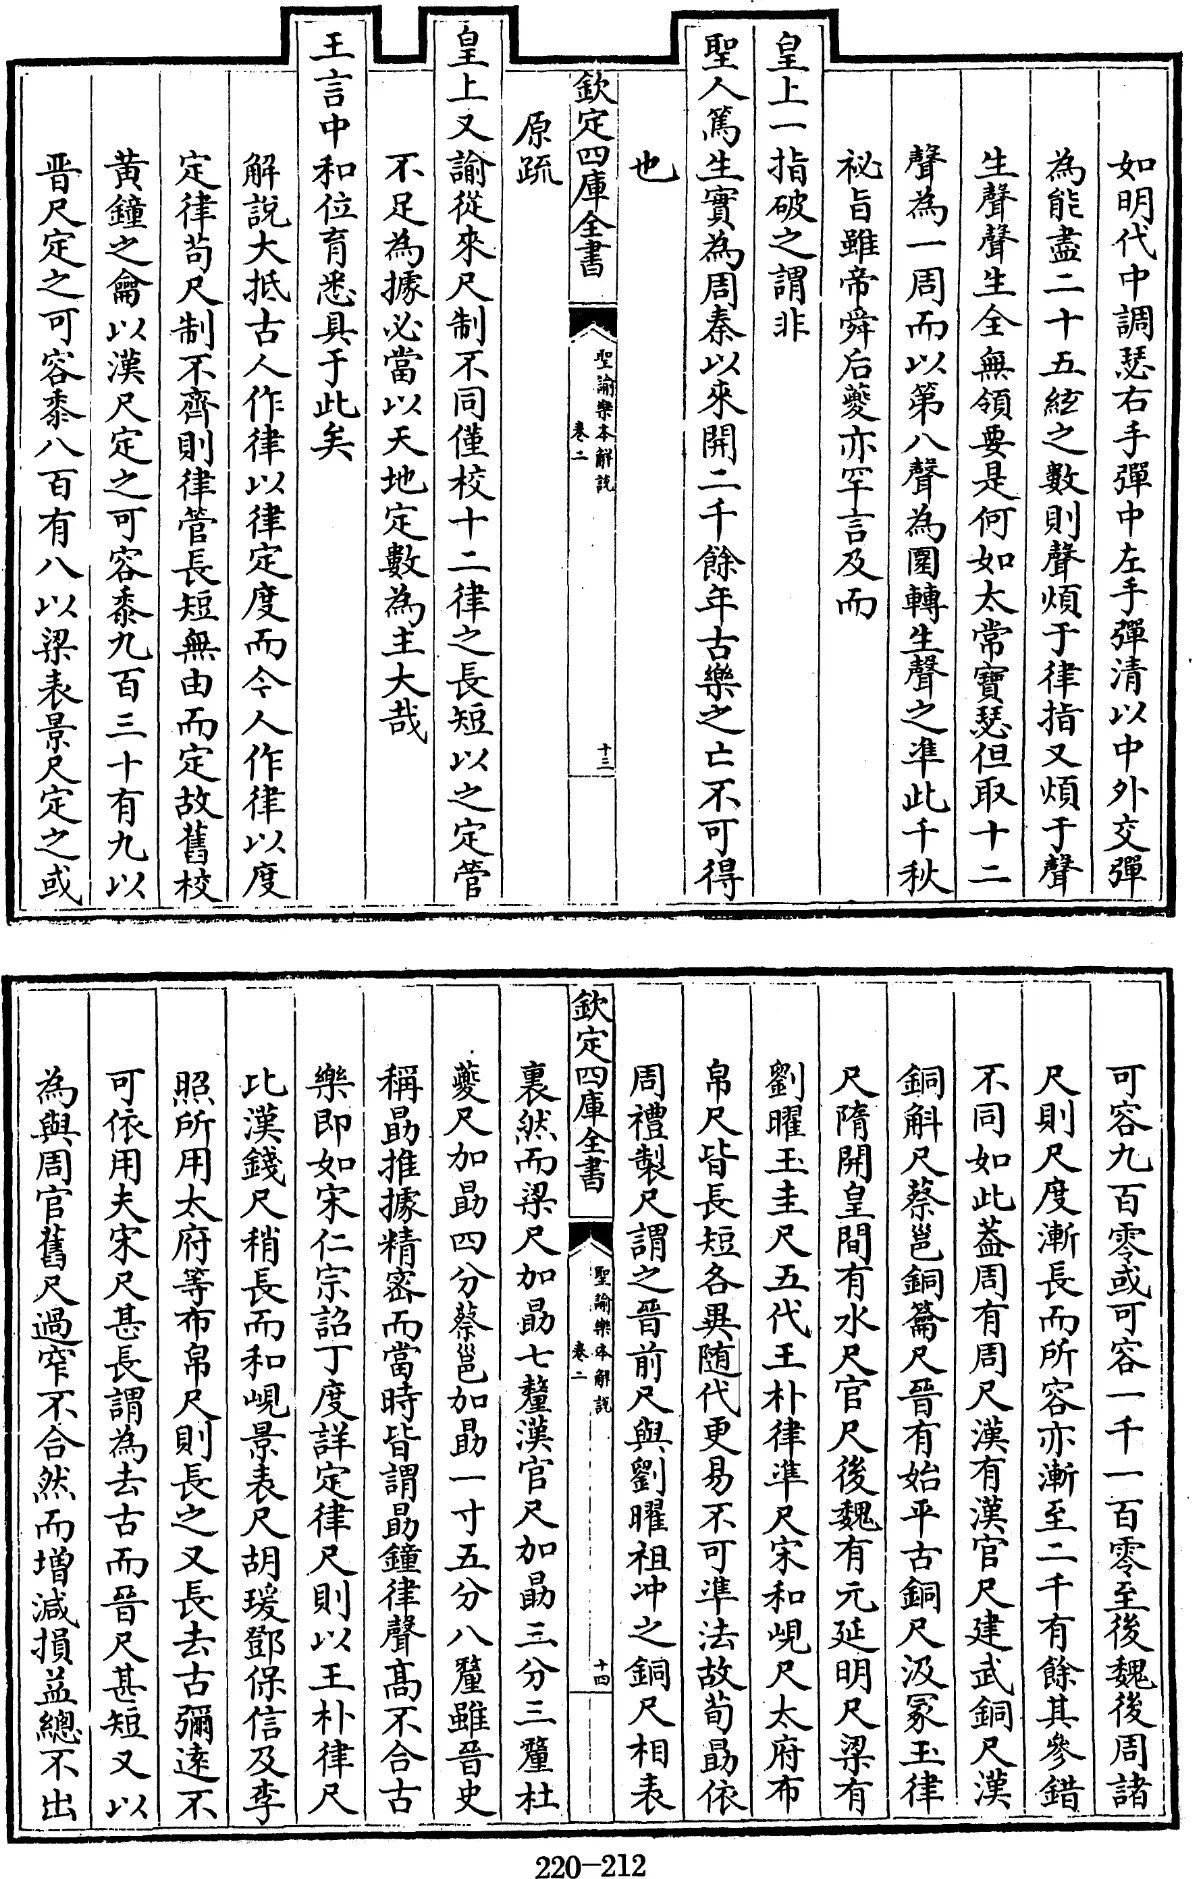 如明代中調瑟右手彈中左手彈清以中外交彈
為能盡二十五絃之數則聲煩于律指又煩于聲
生聲聲生全無領要是何如太常寶瑟但取十二
聲為一周而以第八聲為圍轉生聲之準此千秋
祕旨雖帝舜后夔亦罕言及而
皇上一指破之謂非
聖人篤生實為周秦以來開二千餘年古樂之亡不可得
也
欽定四庫全書
聖諭樂本解說
卷二
十三
原疏
皇上又諭從來尺制不同僅校十二律之長短以之定管
不足為據必當以天地定數為主大哉
王言中和位育悉具于此矣
解說大抵古人作律以律定度而今人作律以度
定律苟尺制不齊則律管長短無由而定故舊校
黃鐘之龠以漢尺定之可容黍九百三十有九以
晉尺定之可容黍八百有八以梁表景尺定之或
可容九百零或可容一千一百零至後魏後周諸
尺則尺度漸長而所容亦漸至二千有餘其參錯
不同如此葢周有周尺漢有漢官尺建武銅尺漢
銅斛尺蔡邕銅籥尺晉有始平古銅尺汲冢玉律
尺隋開皇間有水尺官尺後魏有元延明尺梁有
劉曜玉圭尺五代王朴律準尺宋和峴尺太府布
帛尺皆長短各異隨代更易不可準法故荀勗依
周禮製尺謂之晉前尺與劉曜祖冲之銅尺相表
欽定四庫全書
聖諭樂本解說
卷二
十四
裏然而梁尺加勗七釐漢官尺加勗三分三釐杜
夔尺加勗四分蔡邕加勗一寸五分八釐雖晉史
稱勗推據精密而當時皆謂勗鐘律聲高不合古
樂即如宋仁宗詔丁度詳定律尺則以王朴律尺
比漢錢尺稍長而和峴景表尺胡瑗鄧保信及李
照所用太府等布帛尺則長之又長去古彌遠不
可依用夫宋尺甚長謂為去古而晉尺甚短又以
為與周官舊尺過窄不合然而增減損益總不出
220-212